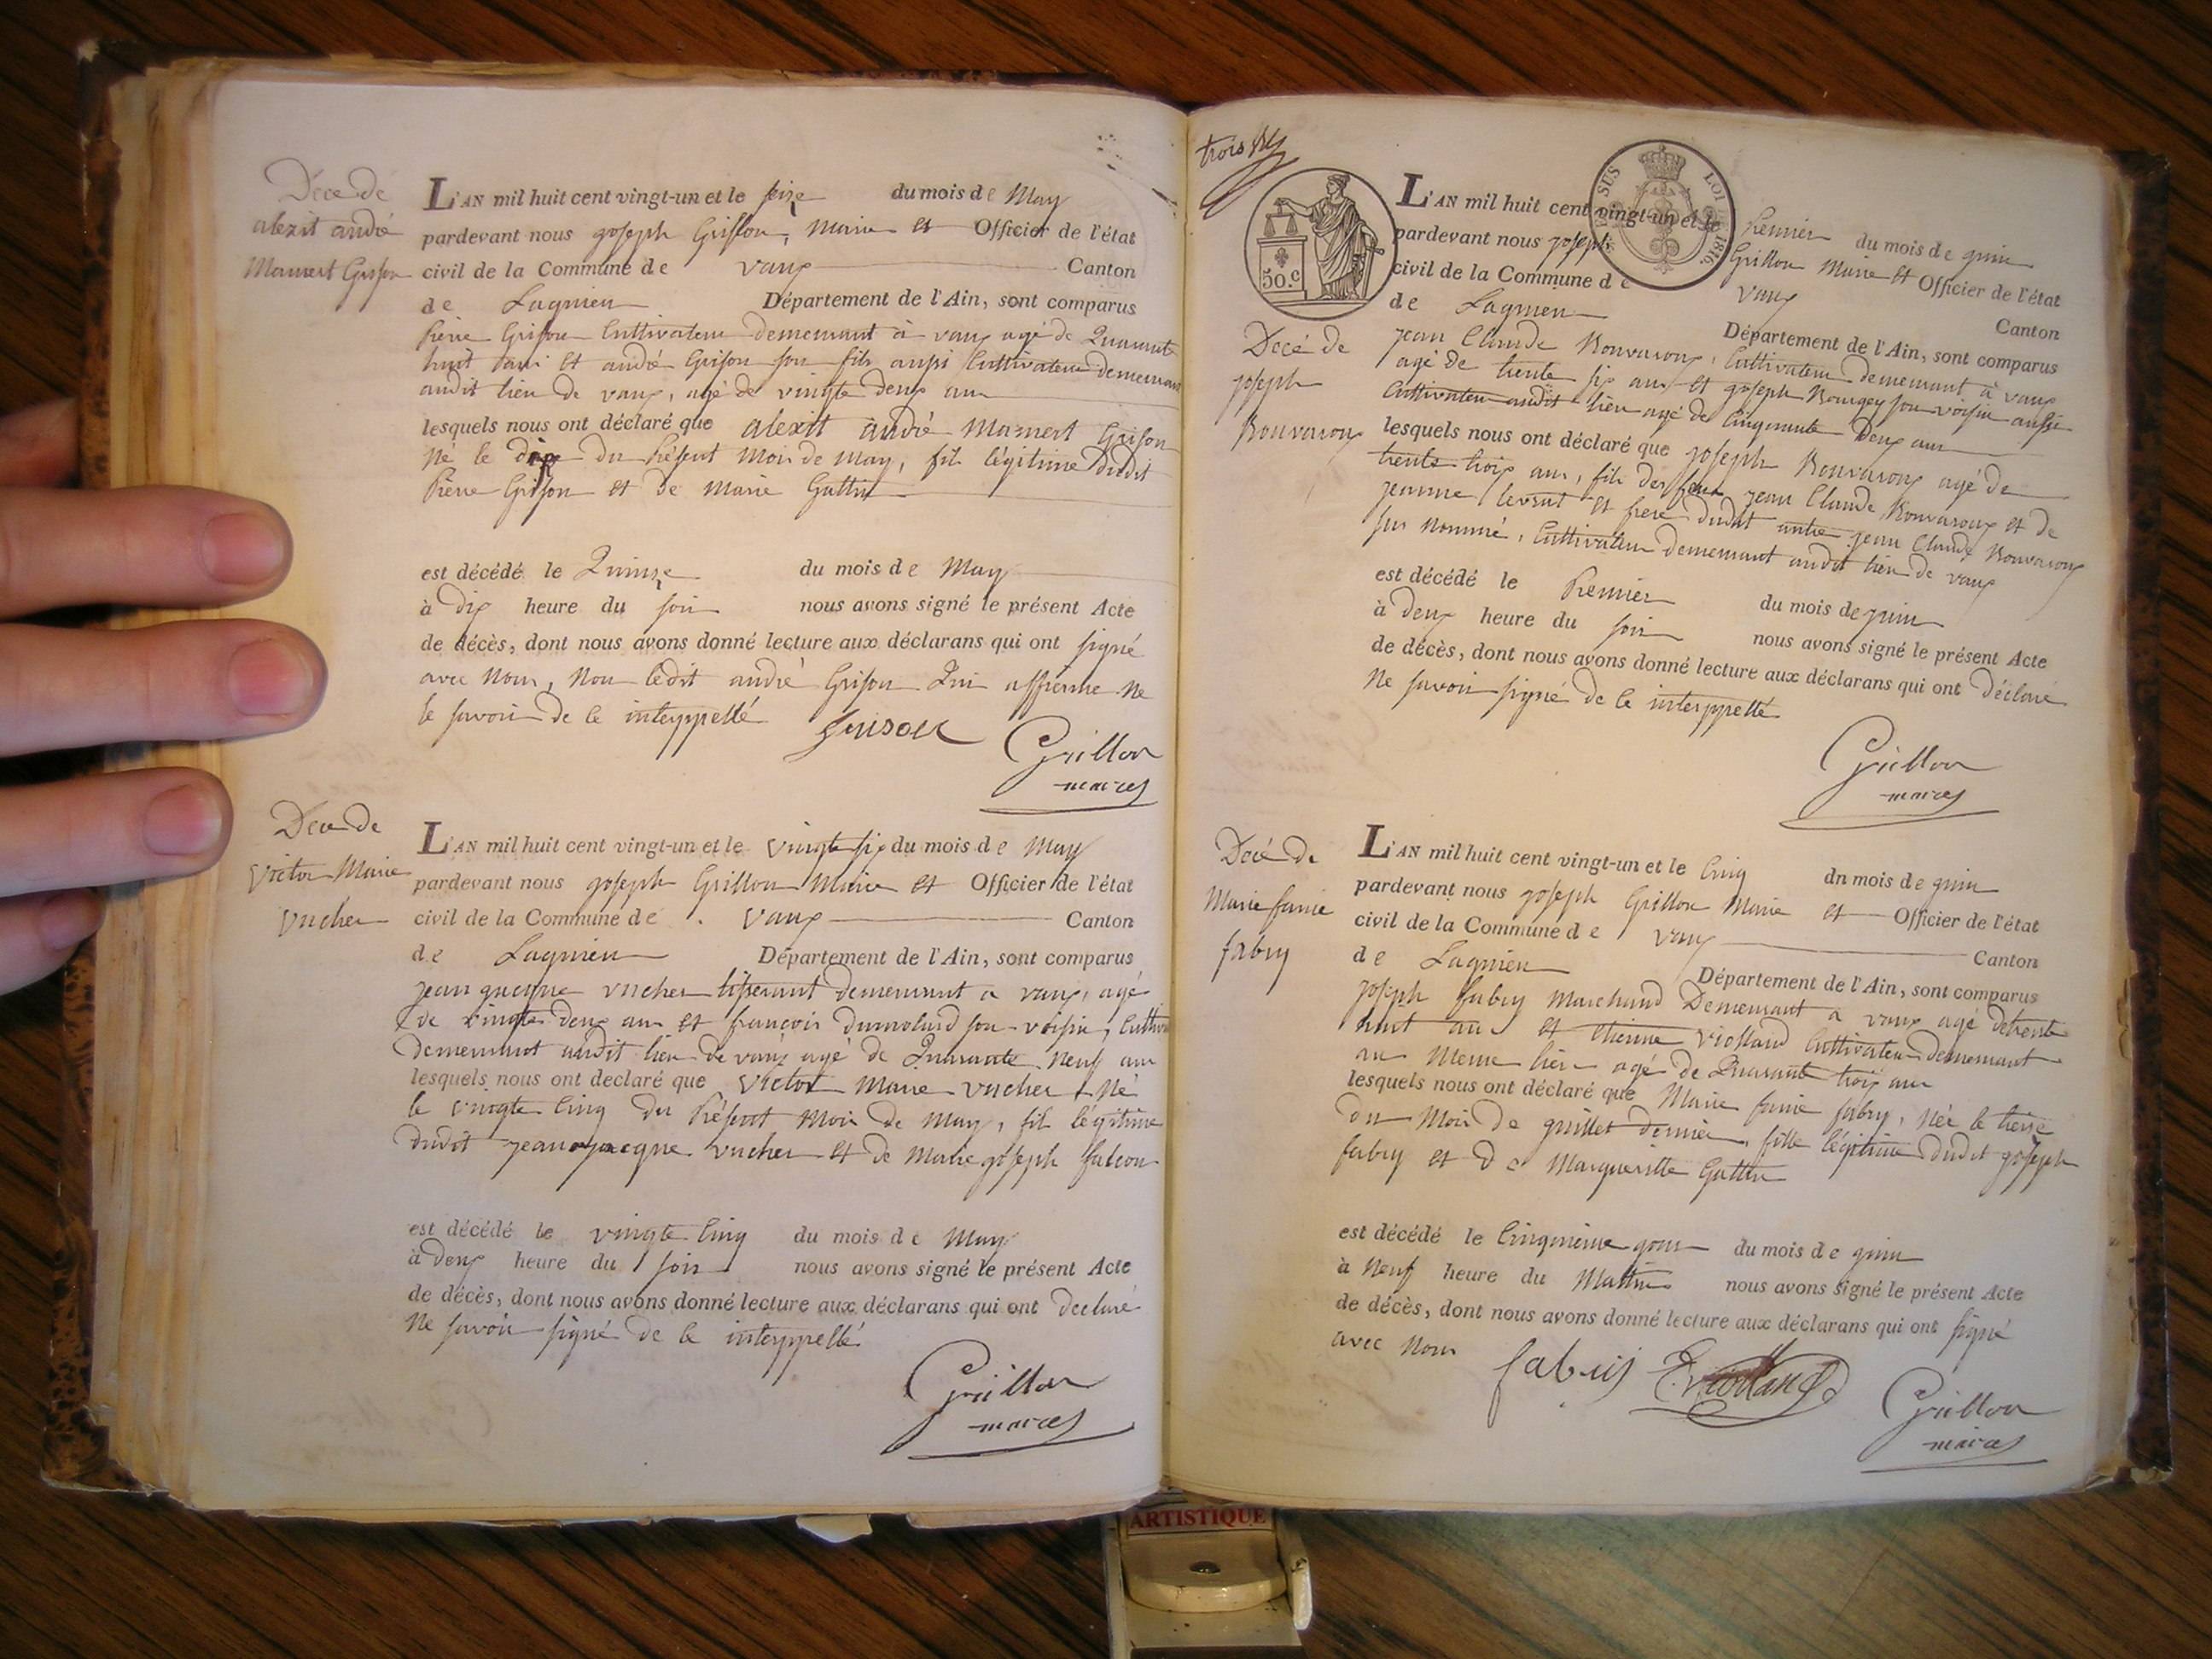 Décé de
alexit andré
Mamert Grison
L'AN mil huit cent vingt-un et le seize du mois de May
pardevant nous joseph Grillon, Maire et Officier de l'état
civil de la Commune de vaux Canton
de Lagnieu Département de l'Ain, sont comparus
Pierre Grison Cultivateur demeurant à vaux agé de Quarante
huit ans et andré Grison son fils aussi Cultivateur demeurant
audit lieu de vaux, agé de vingte deux ans
lesquels nous ont déclaré que alexit andré Mamert Grison
né le dix du Présent Mois de May, fils légitime dudit
Pierre Grison et de Marie Guttin
est décédé le Quinze du mois de May
à dix heure du soir nous avons signé le présent Acte
de décès, dont nous avons donné lecture aux déclarans qui ont signé
avec Nous, Non ledit andré Grison Qui affirme Ne
le savoir de ce interppellé Grison
Grillon
maire
Décé de
victor Marie
vucher
L'AN mil huit cent vingt-un et le vingte six du mois de May
pardevant nous joseph Grillon Maire et Officier de l'état
civil de la Commune de vaux Canton
de Lagnieu Département de l'Ain, sont comparus
jean jacque vucher tisserant demeurant a vaux, agé
de vingte deux ans et françois dumolard son voisin, Cultiva
demeurant audit lieu de vaux agé de Quarante Neuf ans
lesquels nous ont declaré que victor Marie vucher Né
le vingte Cinq du Présent Mois de May, fils légitime
dudit jean jacque vucher et de Marie joseph falcon
est décédé le vingte Cinq du mois de May
à deux heure du soir nous avons signé le présent Acte
de décès, dont nous avons donné lecture aux déclarans qui ont declaré
Ne savoir signé de ce interppellé
Grillon
maire
trois
50.c
SUS LOI 1816.
Decé de
joseph
Bouvaroux
L'AN mil huit cent vingt-un et le Premier du mois de juin
pardevant nous joseph Grillon Maire et Officier de l'état
civil de la Commune de vaux Canton
de Lagnieu Département de l'Ain, sont comparus
jean Claude Bouvaroux, Cultivateur demeurant à vaux
agé de trente six ans et joseph Bourgey son voisin aussi
Cultivateur audit lieu agé de Cinquante Deux ans
lesquels nous ont déclaré que joseph Bouvaroux agé de
trente trois ans, fils des feux jean Claude Bouvaroux et de
jeanne levrat et frere dudit autre jean Claude Bouvaroux
sus nommé, Cultivateur demeurant audit lieu de vaux
est décédé le Premier du mois de juin
à Deux heure du soir nous avons signé le présent Acte
de décès, dont nous avons donné lecture aux déclarans qui ont Déclaré
Ne savoir signé de ce interppellé
Grillon
maire
Décé de
Marie fanie
fabry
L'AN mil huit cent vingt-un et le Cinq du mois de juin
pardevant nous joseph Grillon Maire et Officier de l'état
civil de la Commune de vaux Canton
de Lagnieu Département de l'Ain, sont comparus
joseph fabry Marchand Demeurant a vaux agé de trente
huit ans et etienne violland Cultivateur demeurant
au Meme lieu agé de Quarante trois ans
lesquels nous ont déclaré que Marie fanie fabry, Née le treise
du Mois de juillet dernier, fille légitime dudit joseph
fabry et de Marguerite Guttin
est décédé le Cinquieme jour du mois de juin
à Neuf heure du Mattin nous avons signé le présent Acte
de décès, dont nous avons donné lecture aux déclarans qui ont signé
avec Nous
fabrij E violland
Grillon
maire
ARTISTIQUE